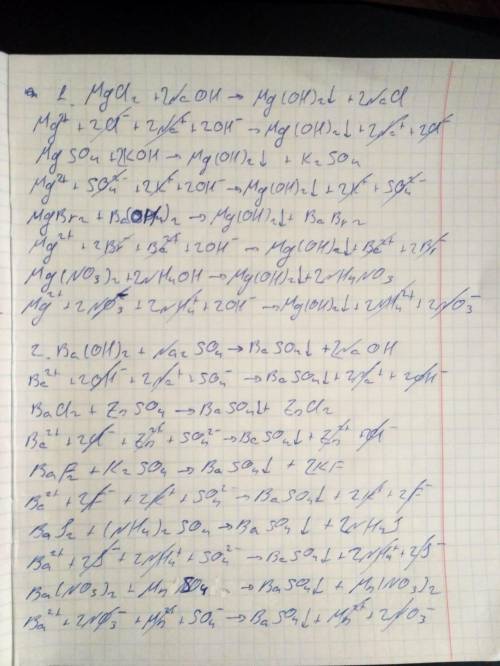 1. MgCl₂ + 2NaOH → Mg(OH)₂↓ + 2NaCl
Mg²⁺ + 2Cl⁻ + 2Na⁺ + 2OH⁻ → Mg(OH)₂↓ + 2Na⁺ + 2Cl⁻
MgSO₄ + 2KOH → Mg(OH)₂↓ + K₂SO₄
Mg²⁺ + SO₄²⁻ + 2K⁺ + 2OH⁻ → Mg(OH)₂↓ + 2K⁺ + SO₄²⁻
MgBr₂ + Ba(OH)₂ → Mg(OH)₂↓ + BaBr₂
Mg²⁺ + 2Br⁻ + Ba²⁺ + 2OH⁻ → Mg(OH)₂↓ + Ba²⁺ + 2Br⁻
Mg(NO₃)₂ + 2NH₄OH → Mg(OH)₂↓ + 2NH₄NO₃
Mg²⁺ + 2NO₃⁻ + 2NH₄⁺ + 2OH⁻ → Mg(OH)₂↓ + 2NH₄⁺ + 2NO₃⁻
2. Ba(OH)₂ + Na₂SO₄ → BaSO₄↓ + 2NaOH
Ba²⁺ + 2OH⁻ + 2Na⁺ + SO₄⁻ → BaSO₄↓ + 2Na⁺ + 2OH⁻
BaCl₂ + ZnSO₄ → BaSO₄↓ + ZnCl₂
Ba²⁺ + 2Cl⁻ + Zn²⁺ + SO₄²⁻ → BaSO₄↓ + Zn²⁺ + 2Cl⁻
BaF₂ + K₂SO₄ → BaSO₄↓ + 2KF
Ba²⁺ + 2F⁻ + 2K⁺ + SO₄²⁻ → BaSO₄↓ + 2K⁺ + 2F⁻
BaJ₂ + (NH₄)₂SO₄ → BaSO₄↓ + 2NH₄J
Ba²⁺ + 2J⁻ + 2NH₄⁺ + SO₄²⁻ → BaSO₄↓ + 2NH₄⁺ + 2J⁻
Ba(NO₃)₂ + MnSO₄ → BaSO₄↓ + Mn(NO₃)₂
Ba²⁺ + 2NO₃⁻ + Mn²⁺ + SO₄⁻ → BaSO₄↓ + Mn²⁺ + 2NO₃⁻